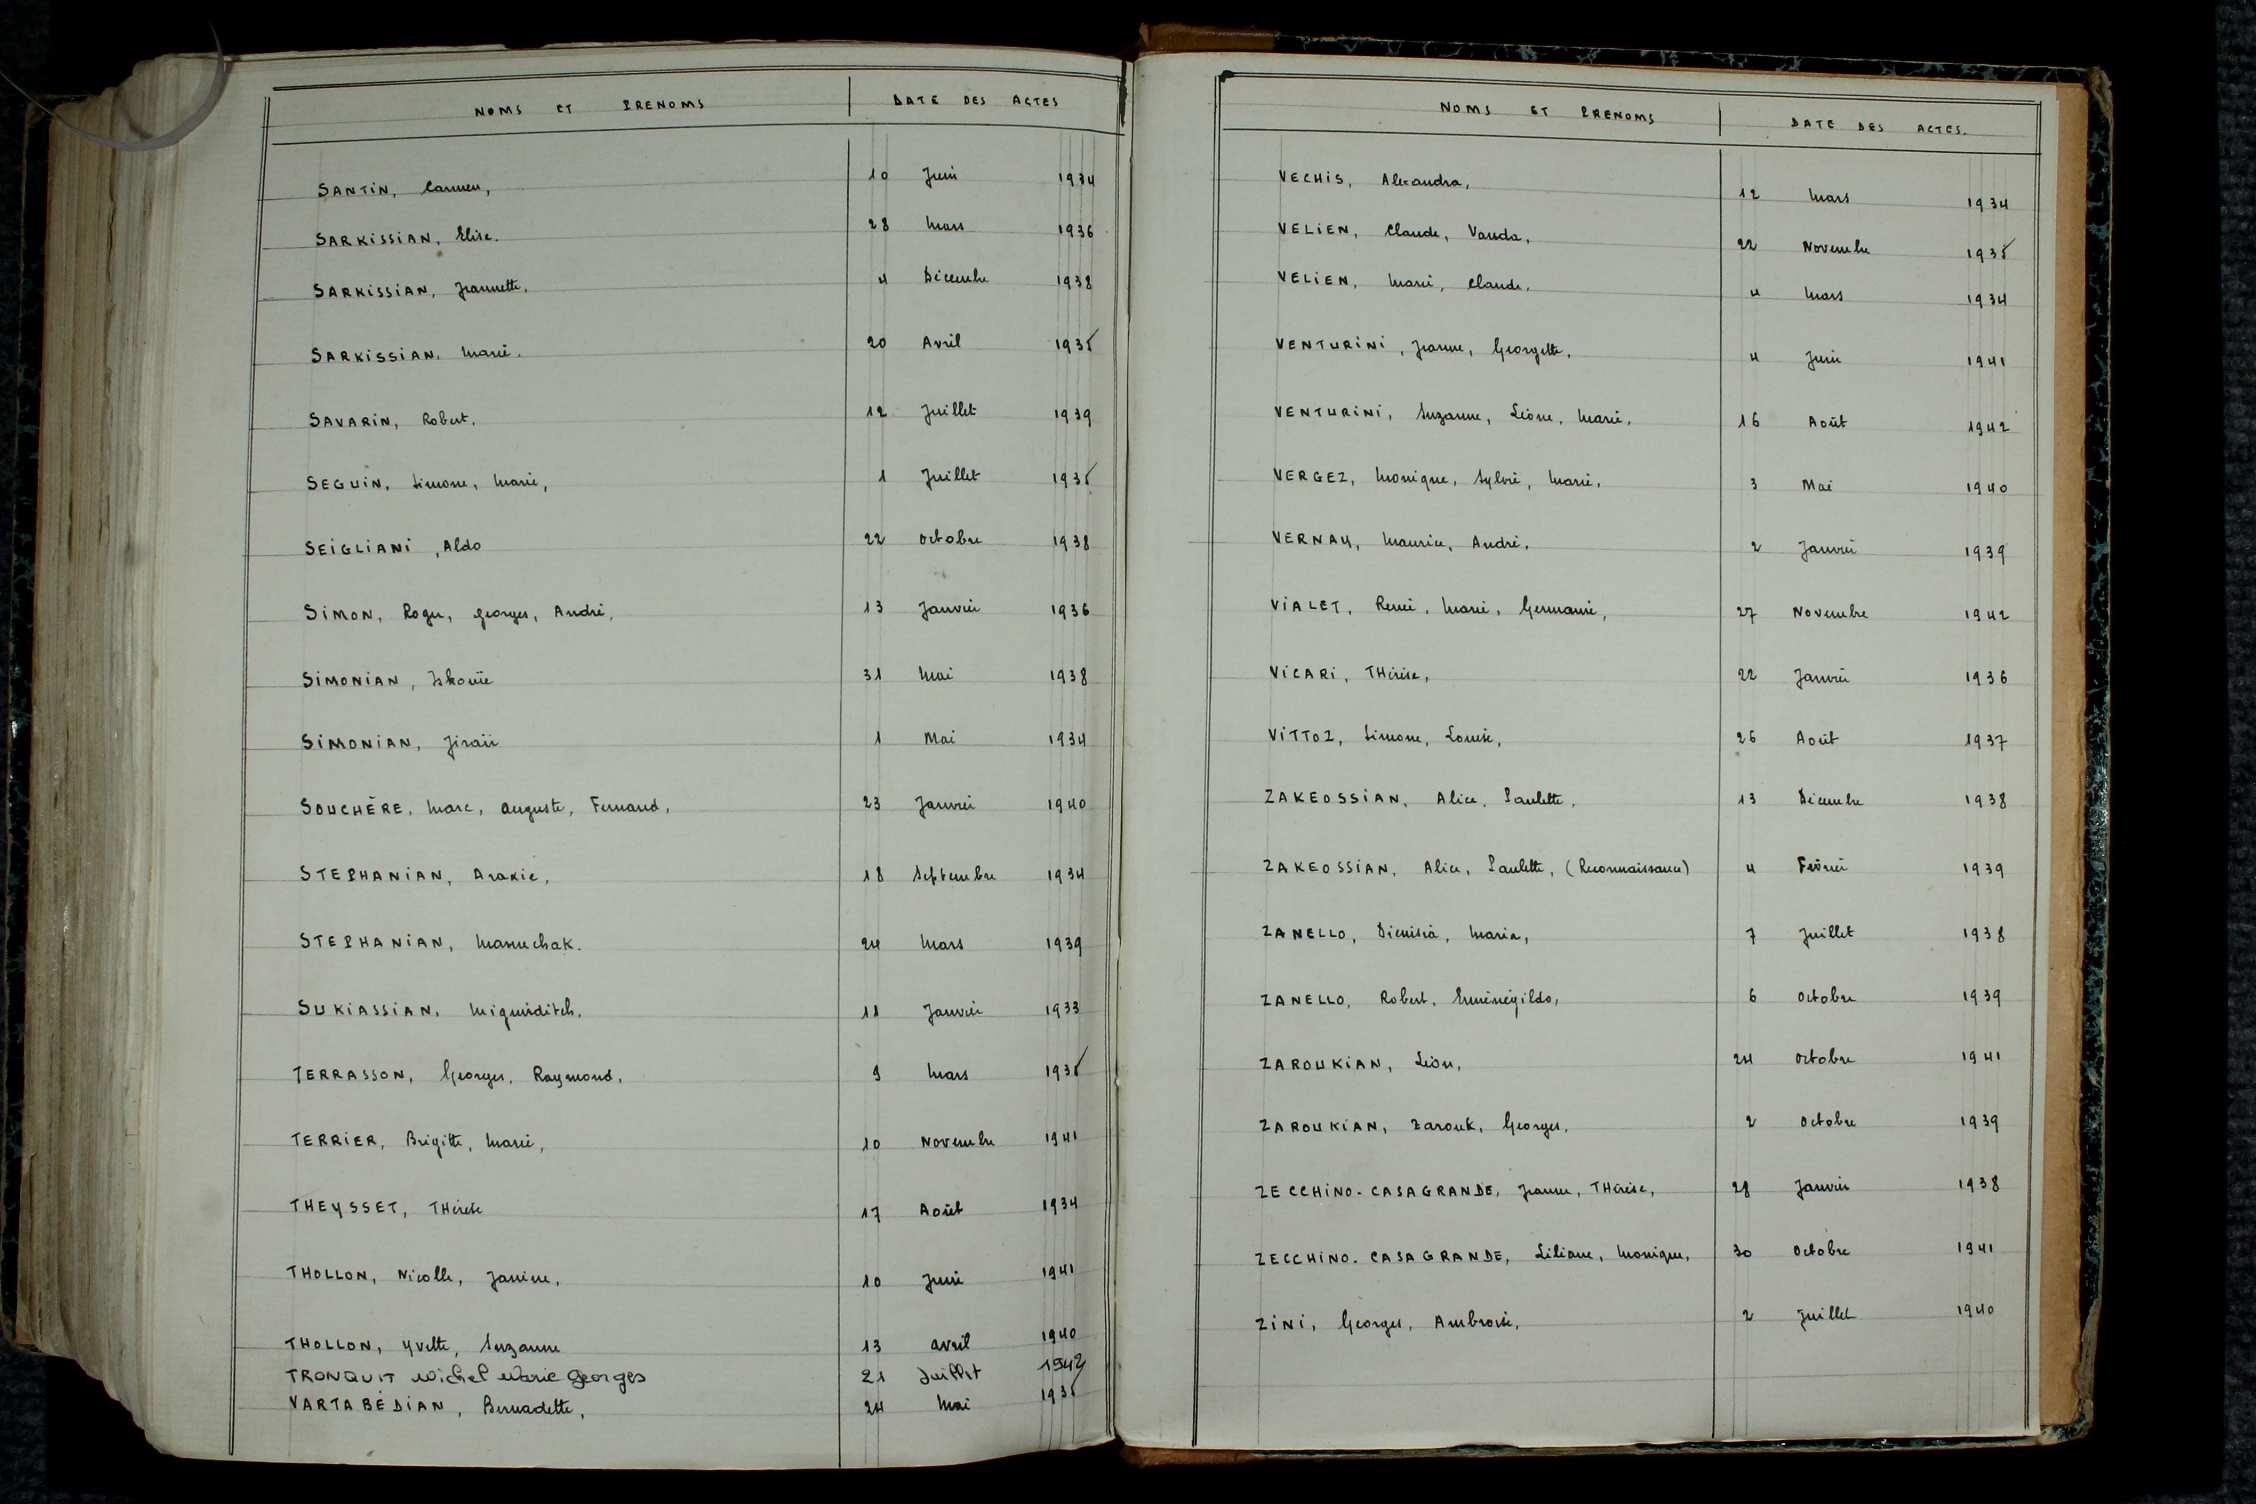 NOMS ET PRENOMS DATE DES ACTES
SANTIN, Carmen, 10 Juin 1934
SARKISSIAN, Elise. 28 Mars 1936
SARKISSIAN, Jeannette. 4 Décembre 1938
SARKISSIAN, Marie. 20 Avril 1935
SAVARIN, Robert. 12 Juillet 1939
SEGUIN, Simone, Marie, 1 Juillet 1935
SEIGLIANI, Aldo 22 Octobre 1938
SIMON, Roger, Georges, André, 13 Janvier 1936
SIMONIAN, 31 Mai 1938
SIMONIAN, Jiraïr 1 Mai 1934
SOUCHÈRE, Marc, Auguste, Fernand, 23 Janvier 1940
STEPHANIAN, Araxie, 18 Septembre 1934
STEPHANIAN, Manuchak. 24 Mars 1939
SUKIASSIAN, Miguirditch, 11 Janvier 1933
TERRASSON, Georges, Raymond, 9 Mars 1935
TERRIER, Brigitte, Marie, 10 Novembre 1941
THEYSSET, THérèse 17 Août 1934
THOLLON, Nicolle, Janine, 10 Juin 1941
THOLLON, Yvette, Suzanne 13 Avril 1940
TRONQUIT Michel Marie Georges 21 Juillet 1942
VARTABÉDIAN, Bernadette, 24 Mai 1935
NOMS ET PRENOMS DATE DES ACTES.
VECHIS, Alexandra, 12 Mars 1934
VELIEN, Claude, Vanda, 22 Novembre 1935
VELIEN, Marie, Claude, 4 Mars 1934
VENTURINI, Jeanne, Georgette, 4 Juin 1941
VENTURINI, Suzanne, Léone, Marie, 16 Août 1942
VERGEZ, Monique, Sylvie, Marie, 3 Mai 1940
VERNAY, Maurice, André, 2 Janvier 1939
VIALET, Renée, Marie, Germaine, 27 Novembre 1942
VICARI, THérèse, 22 Janvier 1936
VITTOZ, Simone, Louise, 26 Août 1937
ZAKEOSSIAN, Alice, Paulette, 13 Décembre 1938
ZAKEOSSIAN, Alice, Paulette, (Reconnaissance) 4 Février 1939
ZANELLO, Dienisia, Maria, 7 Juillet 1938
ZANELLO, Robert, Erménégildo, 6 Octobre 1939
ZAROUKIAN, Léon, 24 Octobre 1941
ZAROUKIAN, Zarouk, Georges, 2 Octobre 1939
ZECCHINO-CASAGRANDE, Jeanne, THérèse, 28 Janvier 1938
ZECCHINO-CASAGRANDE, Liliane, Monique, 30 Octobre 1941
ZINI, Georges, Ambroise, 2 Juillet 1940